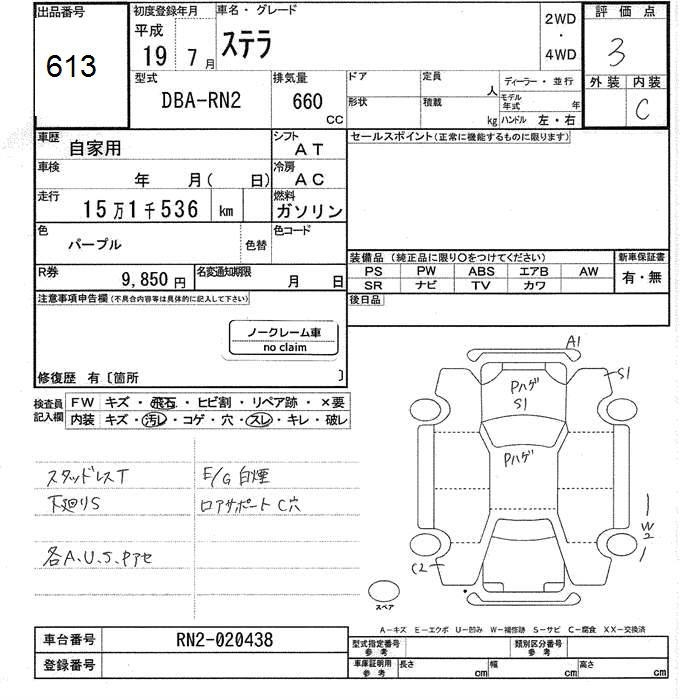 出品番号
613
初度登録年月
平成
19年 7月
車名・グレード
ステラ
2WD
・
4WD
評価点
3
外装 内装
C
型式
DBA-RN2
排気量
660
CC
ドア
形状
定員
人
積載
kg
ディーラー・並行
モデル年式 年
ハンドル 左・右
車歴
自家用
シフト
AT
車検
年 月( 日)
冷房
AC
走行
15万1千536 km
燃料
ガソリン
色
パープル
色替
色コード
R券
9,850円
名変通知期限
月 日
セールスポイント(正常に機能するものに限ります)
装備品 (純正品に限り○をつけてください)
PS PW ABS エアB AW
SR ナビ TV カワ
新車保証書
有・無
後日品
注意事項申告欄(不具合内容等は具体的に記入して下さい)
ノークレーム車
no claim
修復歴 有〔箇所 〕
検査員記入欄
FW キズ・飛石・ヒビ割・リペア跡・×要
内装 キズ・汚レ・コゲ・穴・スレ・キレ・破レ
スタッドレスT
下廻りS
各A.U.S.Pアセ
E/G白煙
ロアサポートC穴
A1
S1
Pハゲ
S1
Pハゲ
W2
C2
スペア
A－キズ E－エクボ U－凹み W－補修跡 S－サビ C－腐食 XX－交換済
車台番号
RN2-020438
登録番号
型式指定番号
参考
類別区分番号
参考
車庫証明用
参考
長さ cm
幅 cm
高さ cm